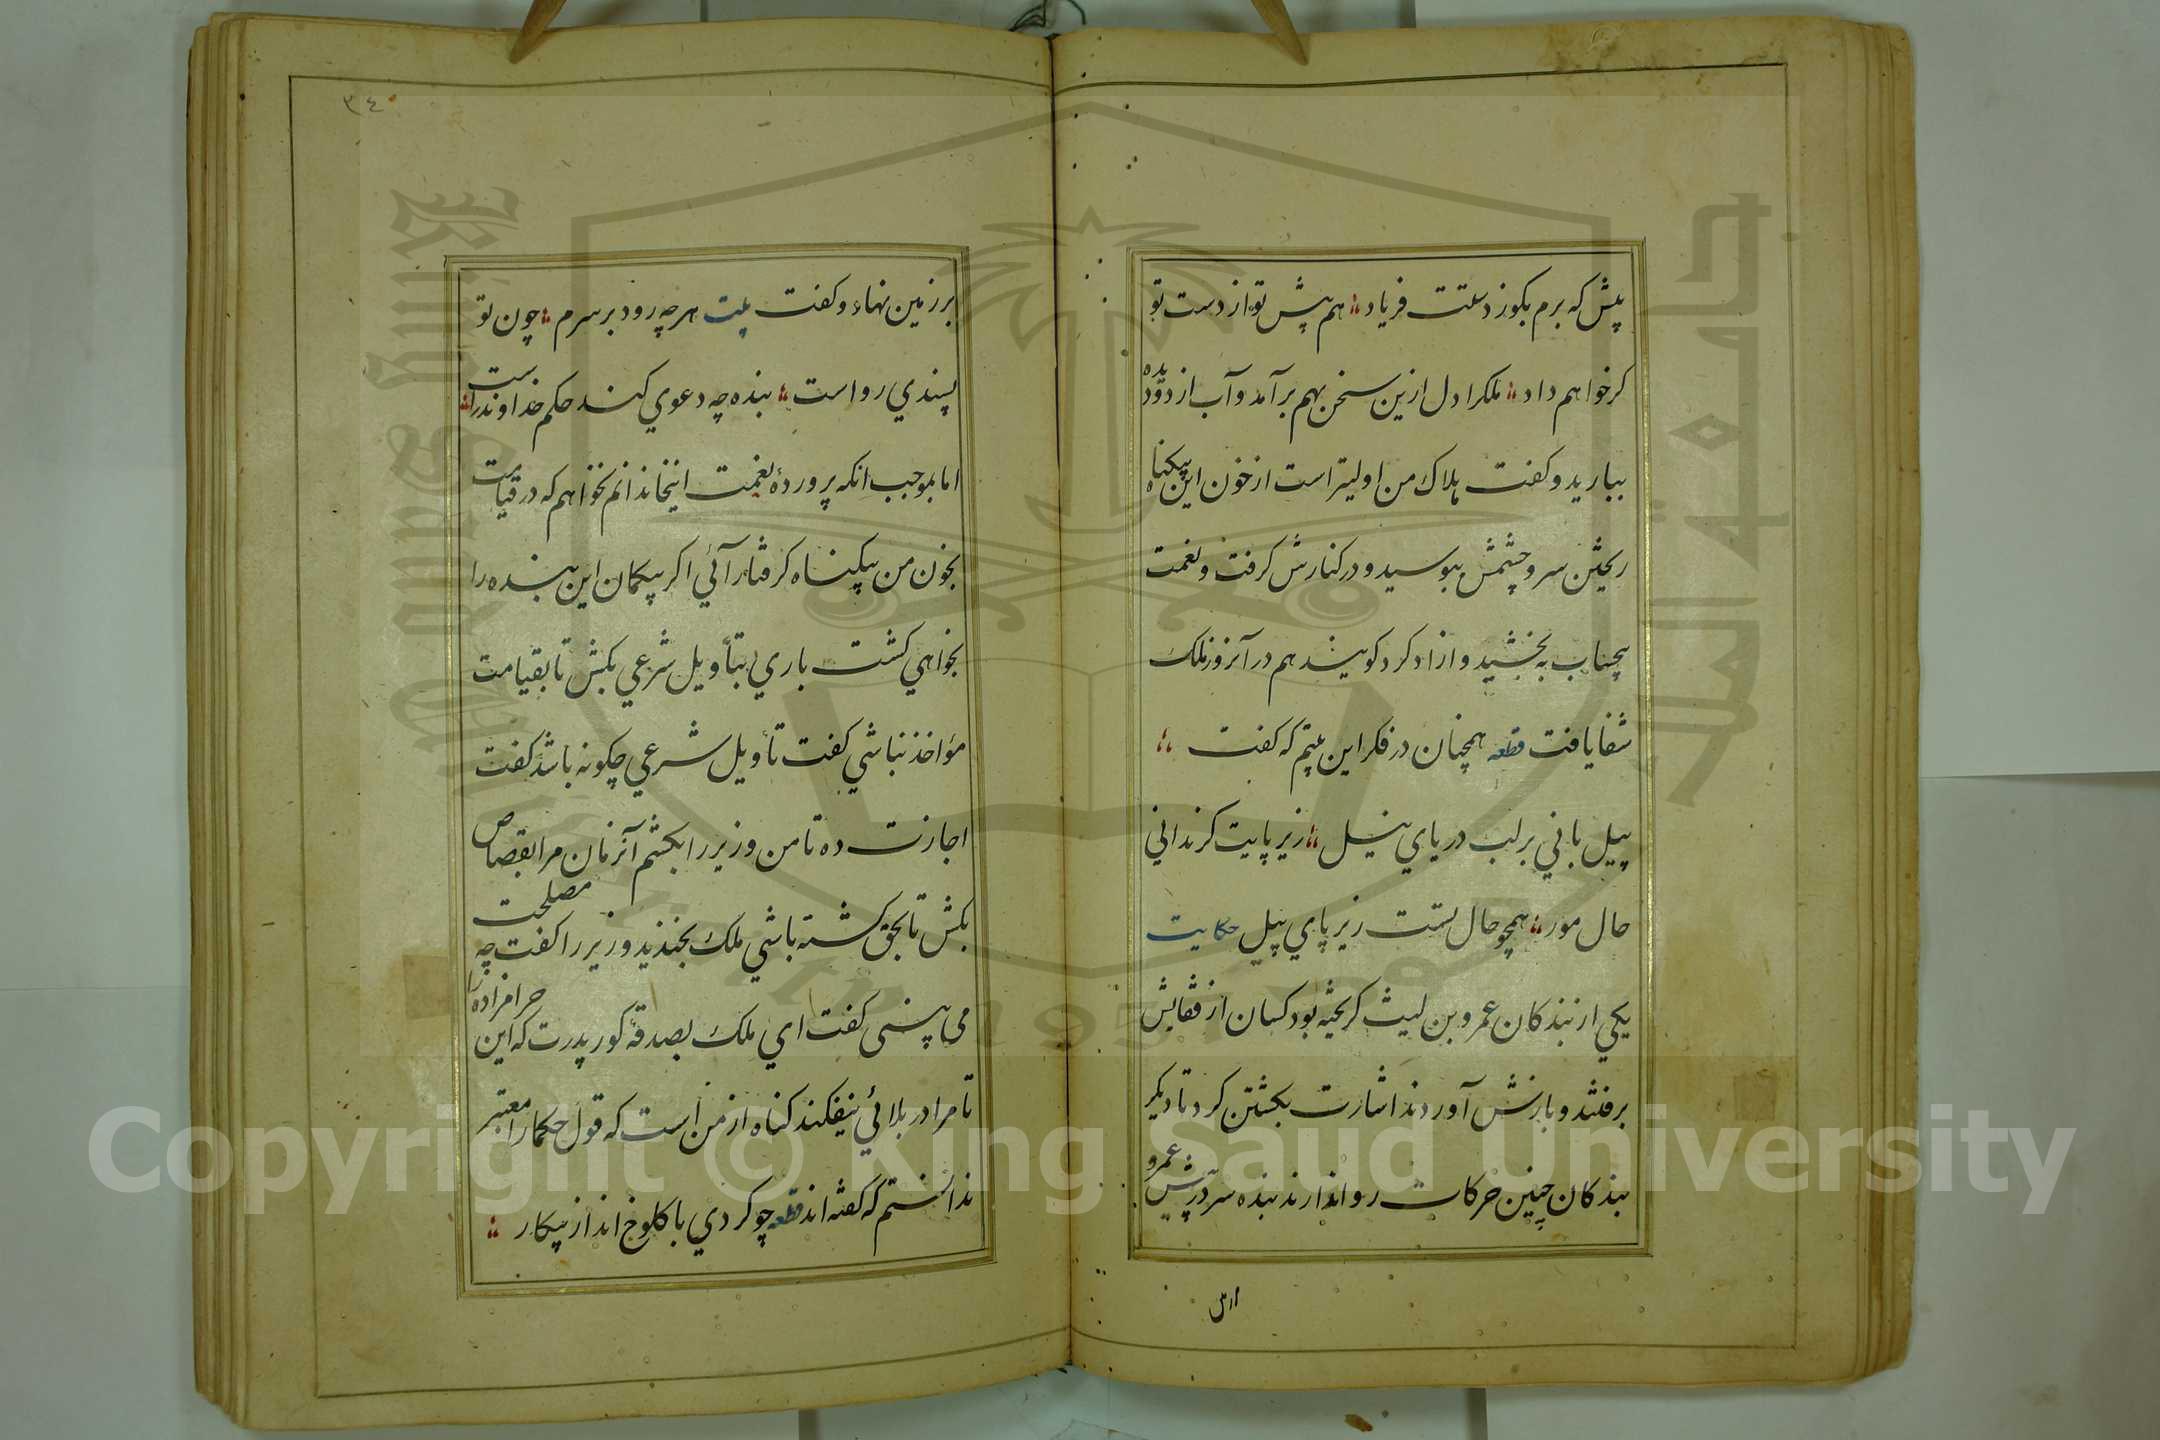 پیش که برم بکو ز دستت فریاد هم پیش تو از دست تو
کر خواهم داد ملکرا دل ازین سخن بهم برآمد و آب از دو دیده
ببارید و کفت هلاک من اولیتر است از خون این بیکناه
ریختن سر و چشمش ببوسید و در کنارش کرفت و نعمت
بیحساب به بخشید و ازاد کرد کویند هم در آنروز ملک
شفا یافت قطعه همچنان در فکر این بیتم که کفت
پیل بانی بر لب دریای نیل زیر پایت کر ندانی
حال مور همچو حال تست زیر پای پیل حکایت
یکی از بندکان عمرو بن لیث کریخته بود کسان از قفایش
برفتند و بازش آوردند اشارت بکشتن کرد تا دیکر
بندکان چنین حرکات روا ندارند بنده سر در پیش عمرو
٣٤
بر زمین نهاد و کفت بیت هر چه رود بر سرم چون تو
پسندي رواست بنده چه دعوي کند حکم خداوندراست
اما بموجب انکه پرورده نعمت اینخاندانم نخواهم که در قیامت
بخون من بیکناه کرفتار آئي اکر بیکمان این بنده را
بخواهي کشت باري بتأویل شرعي بکش تا بقیامت
مؤاخذ نباشي کفت تأویل شرعي چکونه باشد کفت
اجازت ده تا من وزیر را بکشم آنزمان مرا بقصاص
بکش تا بحق کشته باشي ملک بخندید وزیر را کفت چه مصلحت
مي بینی کفت اي ملک بصدقه کور پدرت که این حرامزاده را
تا مرا در بلائي نیفکند کناه از من است که قول حکمارا معتبر
ندانستم که کفته اند قطعه چو کردي با کلوخ انداز پیکار
Copyright © King Saud University
King Saud University
1957